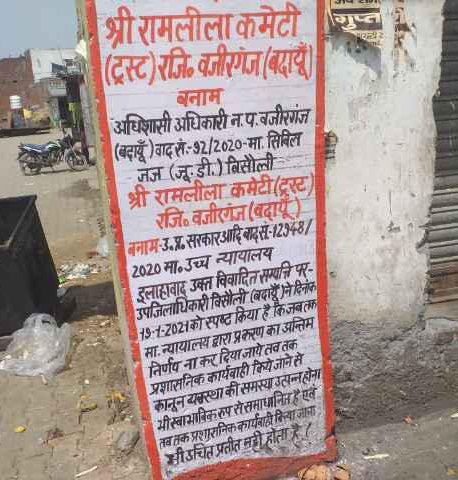 श्री रामलीला कमेटी
(ट्रस्ट) रजि० वजीरगंज (बदायूँ)
बनाम
अधिशासी अधिकारी न.प. वजीरगंज
(बदायूँ) वाद सं.-92/2020-मा. सिविल
जज (जू.डी.) बिसौली
श्री रामलीला कमेटी (ट्रस्ट)
रजि. वजीरगंज (बदायूँ)
बनाम-उ.प्र. सरकार आदि वाद सं.-12948/
2020 मा. उच्च न्यायालय
इलाहावाद उक्त विवादित सम्पत्ति पर-
उपजिलाधिकारी बिसौली (बदायूँ) ने दिनांक
19-1-2021 को स्पष्ट किया है कि जब तक
मा. न्यायालय द्वारा प्रकरण का अन्तिम
निर्णय ना कर दिया जाये तब तक
प्रशासनिक कार्यवाही किये जाने से
कानून व्यवस्था की समस्या उत्पन्न होना
भी स्वाभाविक रूप से समाधानित है एवं
तब तक प्रशासनिक कार्यवाही किया जाना
भी उचित प्रतीत नहीं होता है।
गुप्ता